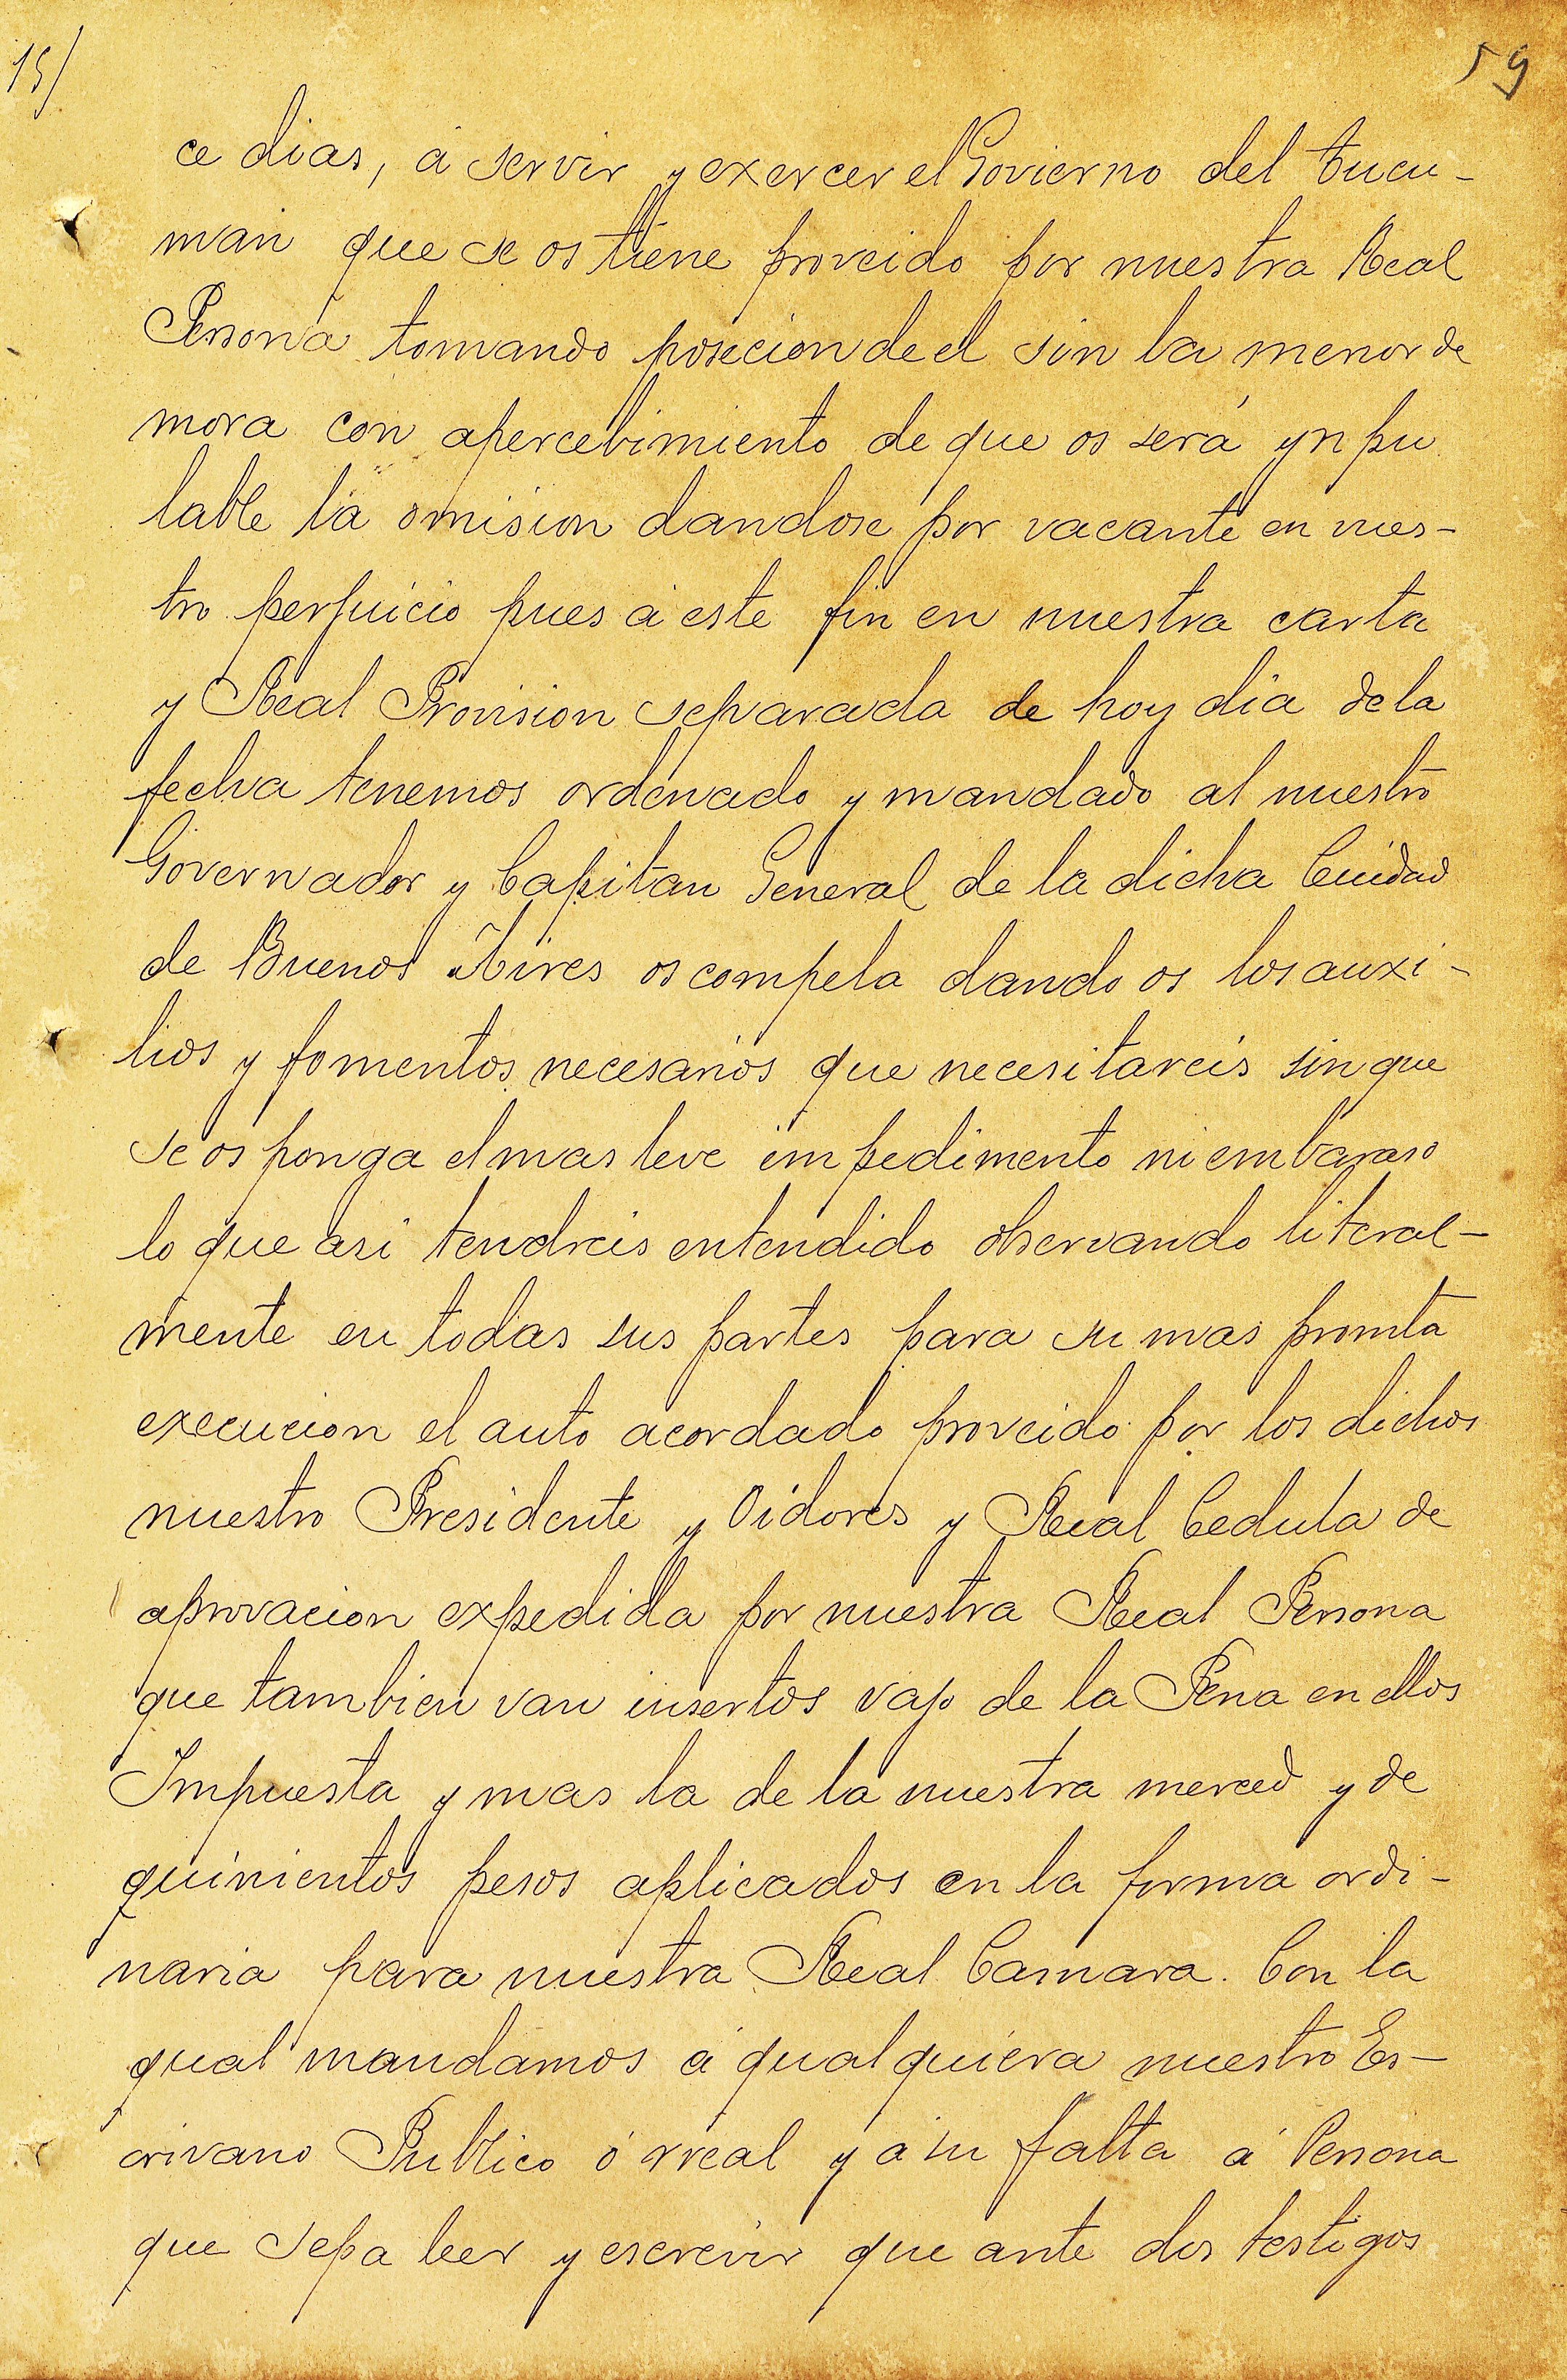 15/
59
ce dias, á servir y exercer el Govierno del tucu-
man que se os tiene proveido por nuestra Real
Persona tomando posecion de el sin la menor de
mora con apercebimiento de que os será ynpu
table la omision dandose por vacante en vues-
tro perjuicio pues á este fin en nuestra carta
y Real Provision separada de hoy dia de la
fecha tenemos ordenado y mandado al nuestro
Governador y Capitan General de la dicha Ciudad
de Buenos Aires os compela dando os los auxi-
lios y fomentos necesarios que necesitareis sin que
se os ponga el mas leve impedimento ni embaraso
lo que asi tendreis entendido observando literal-
mente en todas sus partes para su mas promta
execucion el auto acordado proveido por los dichos
nuestro Presidente y Oidores y Real Cedula de
aprovacion expedida por nuestra Real Persona
que tambien van insertos vajo de la Pena en ellos
Impuesta y mas la de la nuestra merced y de
quinientos pesos aplicados en la forma ordi-
naria para nuestra Real Camara. Con la
qual mandamos á qualquiera nuestro Es-
crivano Publico ó rreal y á su falta á Persona
que sepa leer y escrevir que ante dos testigos